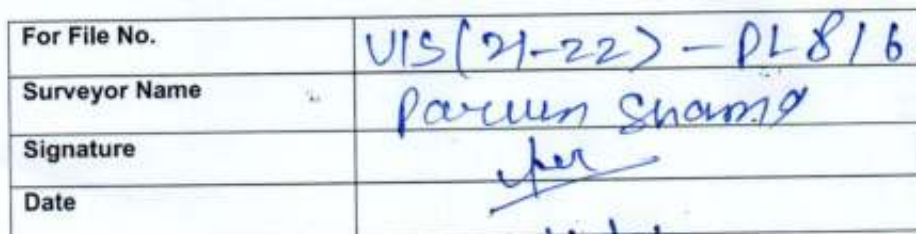 For File No. VIS(21-22)-PL816
Surveyor Name Parveen Sharma
Signature
Date